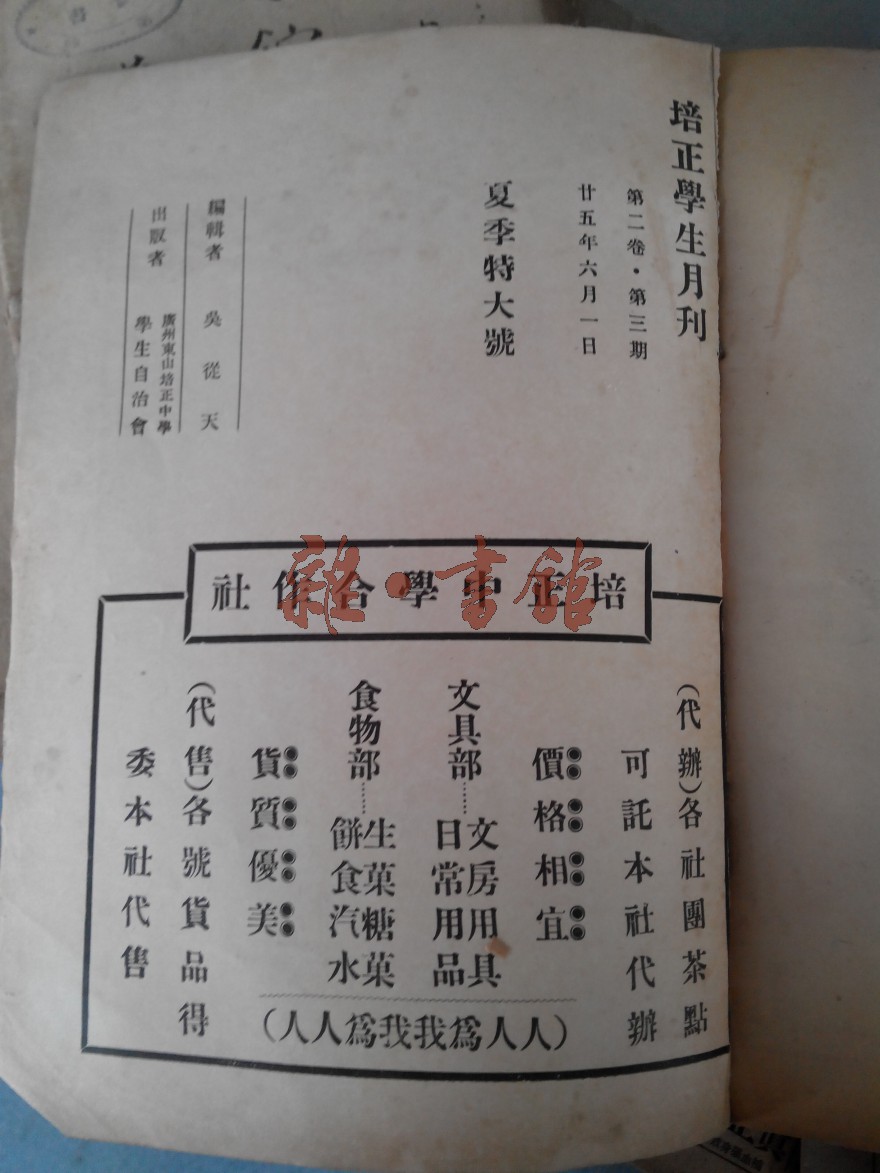 培正學生月刊
第二卷・第三期
廿五年六月一日
夏季特大號
編輯者 吳從天
出版者 廣州東山培正中學
學生自治會
培正中學合作社
(代辦)各社團茶點
可託本社代辦
價格相宜
文具部……文房用具
日常用品
食物部……生菓糖菓
餅食汽水
貨質優美
(代售)各號貨品得
委本社代售
(人人爲我我爲人人)
雜・書館